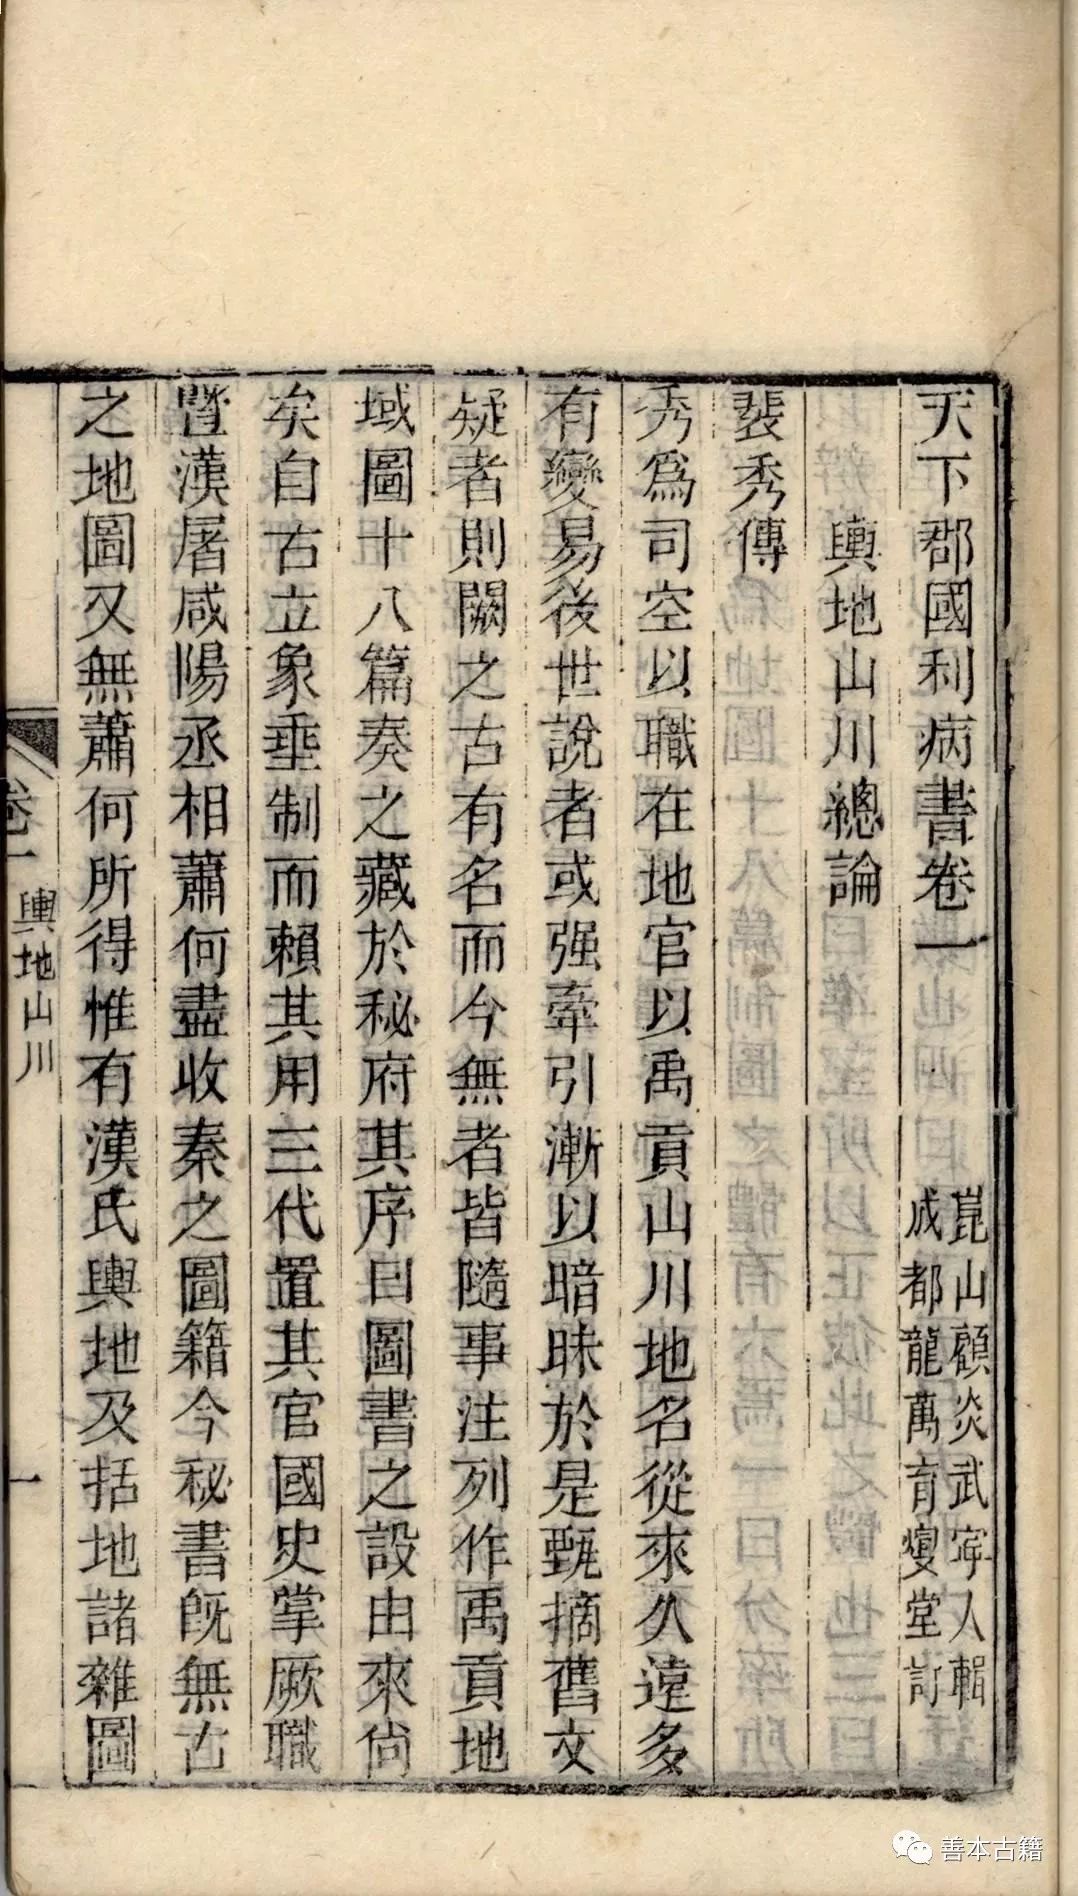 天下郡國利病書卷一
崑山顧炎武寧人輯
成都龍萬育燮堂訂
輿地山川總論
裴秀傳
秀爲司空以職在地官以禹貢山川地名從來久遠多
有變易後世說者或强牽引漸以暗昧於是甄摘舊文
疑者則闕之古有名而今無者皆隨事注列作禹貢地
域圖十八篇奏之藏於秘府其序曰圖書之設由來尙
矣自古立象垂制而賴其用三代置其官國史掌厥職
曁漢屠咸陽丞相蕭何盡收秦之圖籍今秘書旣無古
之地圖又無蕭何所得惟有漢氏輿地及括地諸雜圖
卷一
輿地山川
一
善本古籍